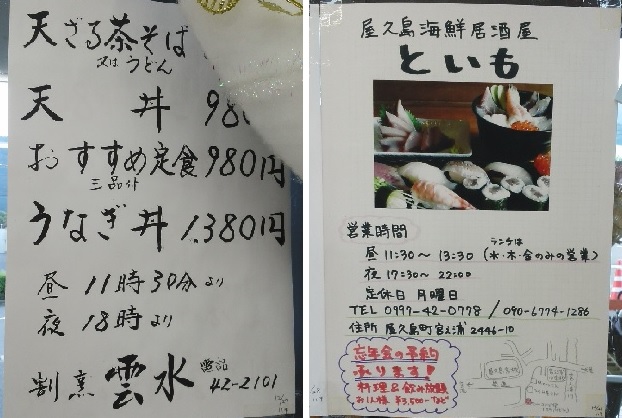 天ざる茶そば
又は うどん
天 丼 980
おすすめ定食 980円
三品付
うなぎ丼 1.380円
昼 11時30分より
夜 18時より
割烹 雲水 電話 42-2101
屋久島海鮮居酒屋
といも
営業時間
ランチは
昼 11:30〜 13:30 (水・木・金のみの営業)
夜 17:30〜 22:00
定休日 月曜日
TEL 0997-42-0778 / 090-6774-1286
住所 屋久島町宮之浦 2446-10
忘年会の予約
承ります!
料理&飲み放題
お1人様 ¥3,500-など